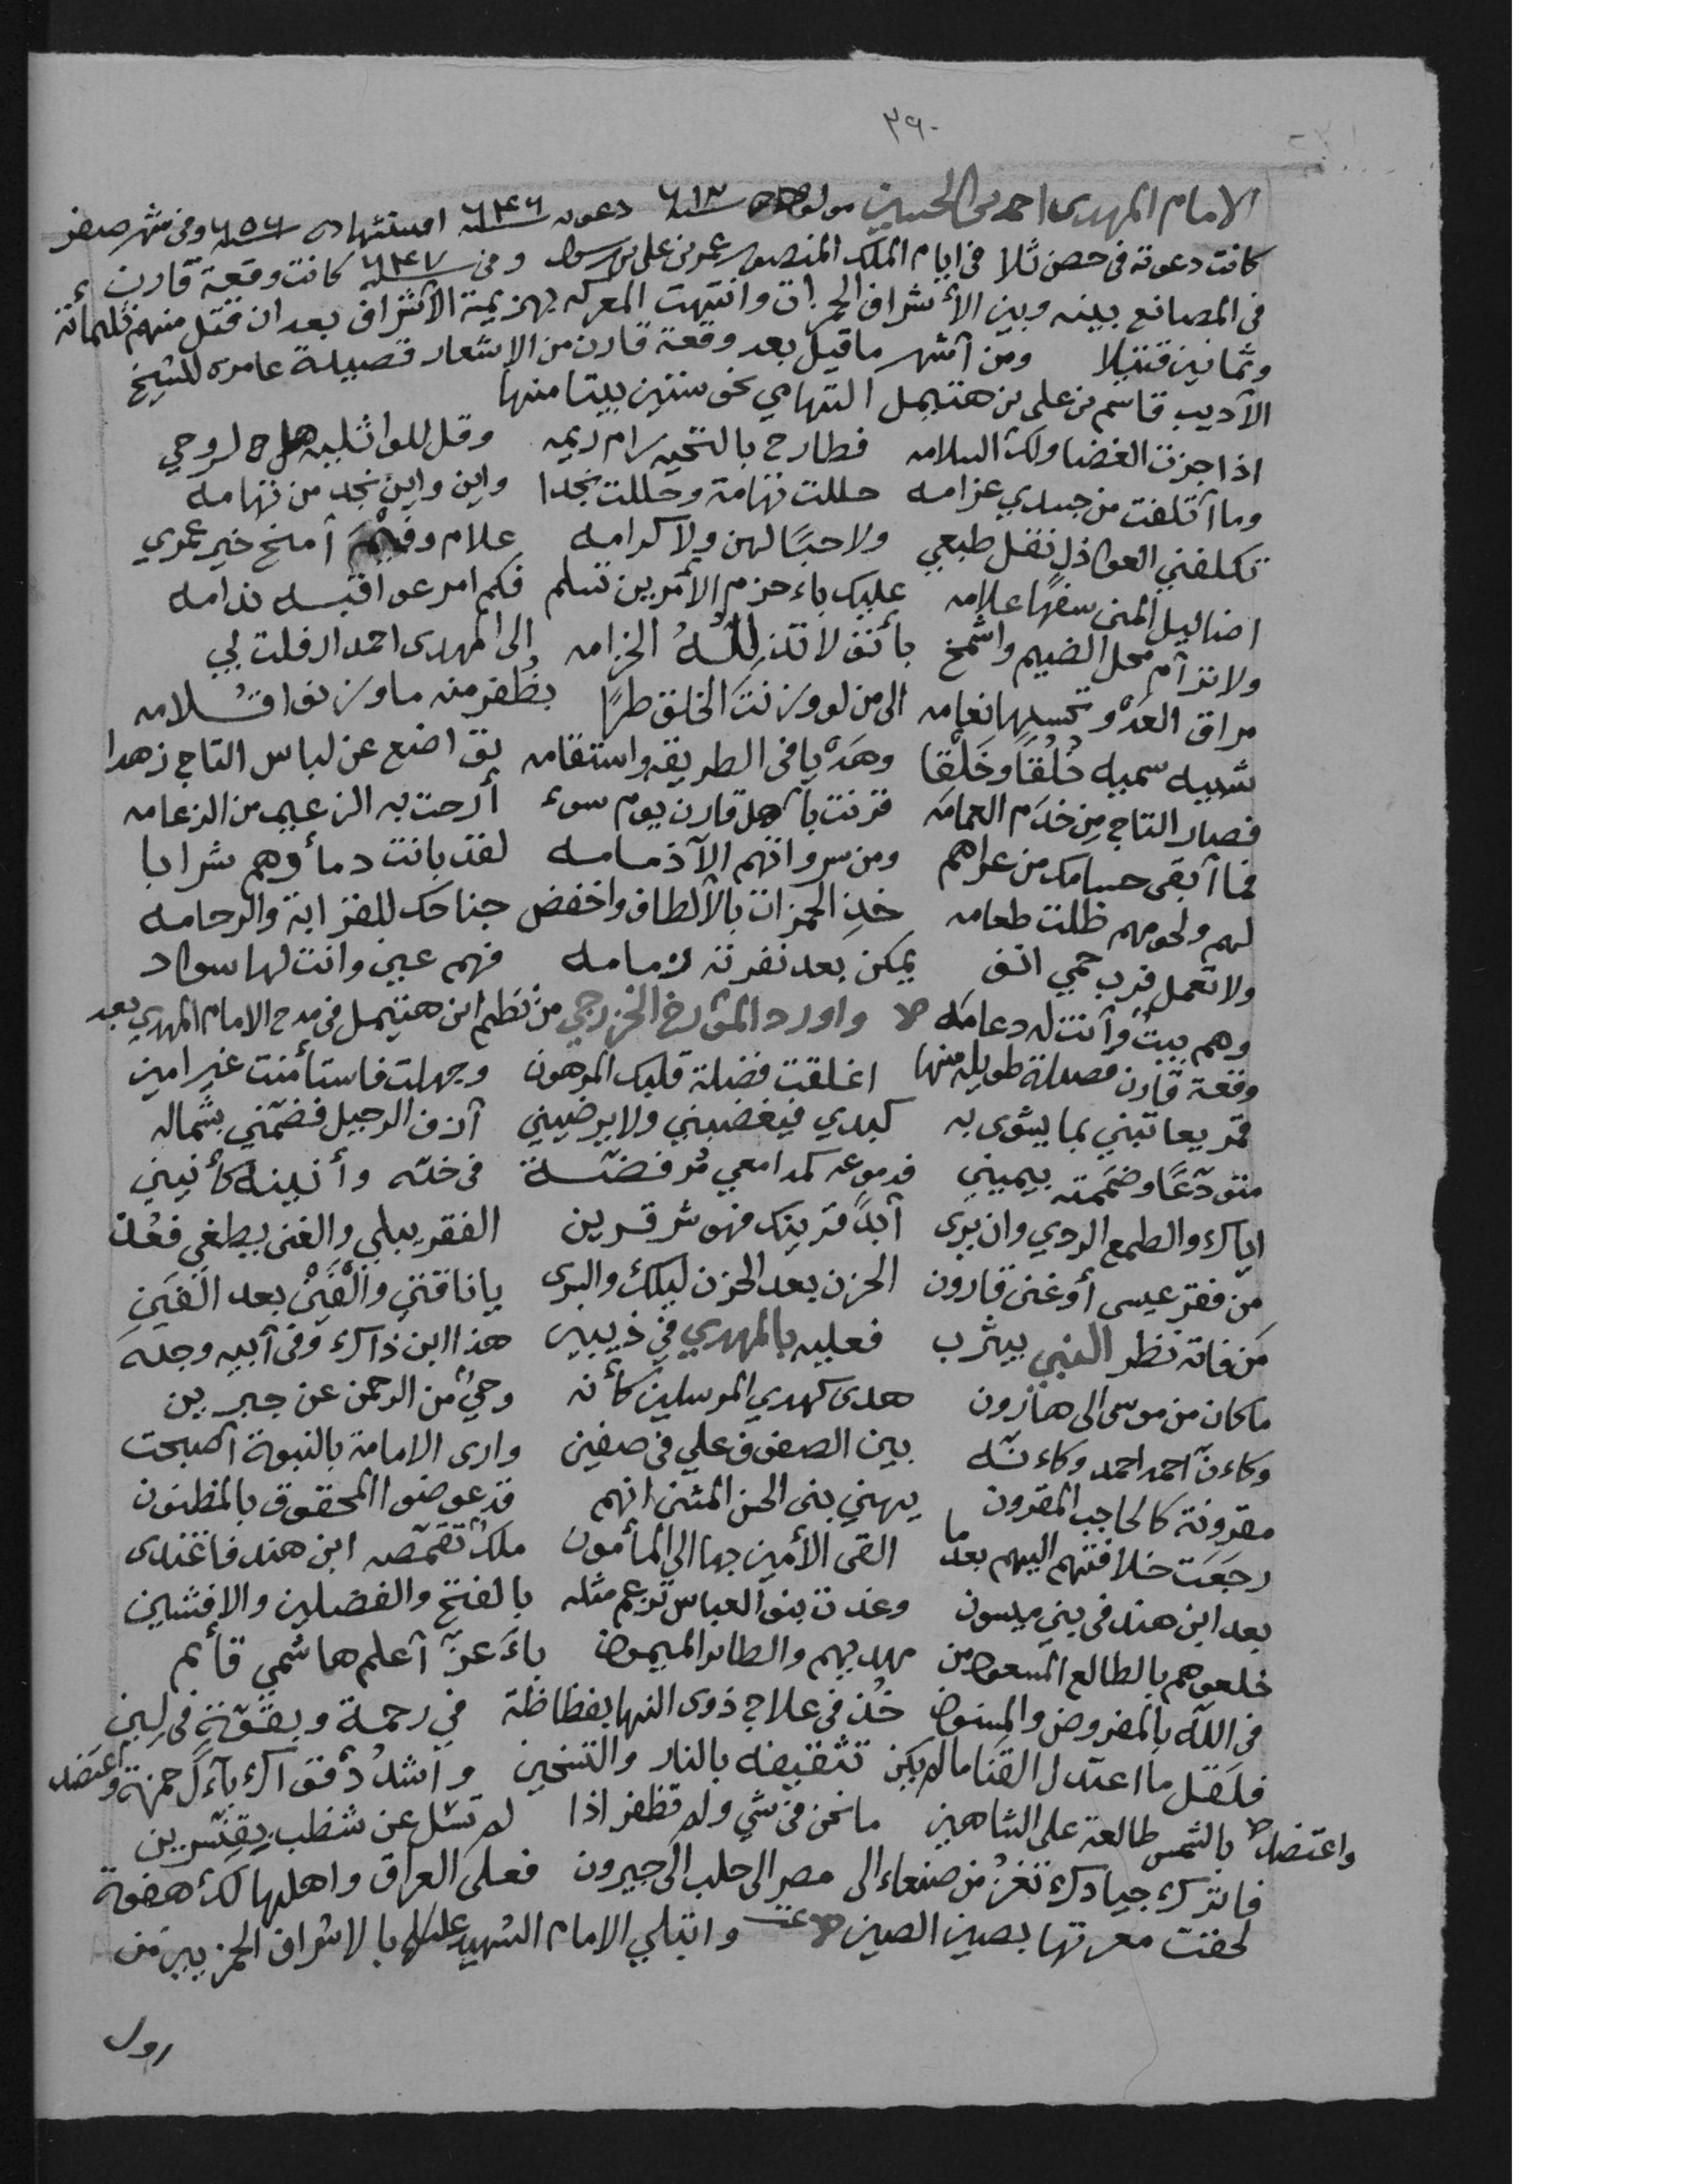 ٣٩٠
الامام المهدى احمد بن الحسين مولده سنة ٦١٢ دعوته سنة ٦٤٦ استشهاده سنة ٦٥٦ وفى شهر صفر
كانت دعوته فى حصن ثلا فى ايام الملك المنصور عمر بن على بن رسول وفى سنة ٦٤٧ كانت وقعة قارن
فى المصانع بينه وبين الأشراف الحمزات وانتهت المعركه بهزيمة الأشراف بعد ان قتل منهم ثلمائة
وثمانين قتيلا ومن أشهر ما قيل بعد وقعة قارن من الاشعار قصيدة عامره للشيخ
الأديب قاسم بن على بن هتيمل التهامي نحو ستين بيتا منها
اذا جزت الغضا ولك السلامه فطارح بالتحيه رام ريمه وقل للوائليه هل لروحي
وما أتلفت من جسدي غرامه حللت تهامة وحللت نجدا واين واين نجد من تهامه
تكلفني العواذل نقل طبعي ولا حبًا لهن ولا كرامه علام وفيم أمنح خير عمري
اضاليل المنى سفهًا علامه عليك باءحزم الأمرين تسلم فكم امر عواقبه ندامه
ولا ترأم محل الضيم واشمخ بأنف لا تذلله الخزامه الى المهدى احمد ارفلت بي
مراق العدْو تحسبها نعامه الى من لو وزنت الخلق طرًا بظفر منه ما وزنوا قلامه
شبيه سميه خُلُقًا وخَلْقا وهَدْيا فى الطريقه واستقامه تواضع عن لباس التاج زهدا
فصار التاج من خدَم العمامَه قرنت بأهل قارن يوم سوء أرحت به الزعيم من الزعامه
فما أبقى حسامك من عراهم ومن سرواتهم الآ ذمامه لقد باتت دمأوهم شرابا
لهم ولحومهم ظلت طعامه خذِ الحمزات بالألطاف واخفض جناحك للقرابة والرحامه
ولا تعمل فرب حمي انف يمكن بعد نفرته زمامه فهم عين وانت لها سواد
وهم بيتٌ وأنت له دعامَه واورد المؤرخ الخزرجي من نظم ابن هتيمل فى مدح الامام المهدي بعد
وقعة قارن قصيدة طويله منها اغلقت فضلة قلبك المرهون وجهلت فاستأمنت غير امين
قمر يعاتبني بما يشوى به كبدي فيغضبني ولا يرضيني أزف الرحيل فضمّني بشماله
متودّعًا وضممته بيميني فدموعه كمدامعي مرفضّة فى خدّه وأنينه كأنيني
اياك والطمع الردي وان يرى أبدًا قرينك فهو شر قرين الفقر يبلي والغنى يطغي فعُذ
من فقر عيسى أو غنى قارون الحزن بعد الحزن ليلك والبرى يا ناقتي والْفَيْن بعد الفَين
مَن فاته نظر النبي بيثرب فعليه بالمهدي في ذيبين هذا ابن ذاك وفى أبيه وجده
ما كان من موسى الى هارون هدى كهدي المرسلين كأنه وحيٌ من الرحمن عن جبرين
وكاءنّ احمد احمد وكاءنّه بين الصفوف علي فى صفين وارى الامامة بالنبوة أصبحت
مقرونة كالحاجب المقرون يهني بنى الحسن المثنى انهم قد عوضوا المحقوق بالمظنون
رجَعَت خلافتهم اليهم بعد ما القى الأمين بها الى المأمون ملكٌ تقمّصه ابن هند فاغتدى
بعد ابن هند فى بني ميسون وغدت بنو العباس تزعم مثله بالفتح والفضلين والافشين
خلعوهم بالطالع المسعود من مهديهم والطائر الميمون باءَعزّ أعلم هاشمي قأئم
فى اللّه بالمفروض والمسنون خذ فى علاج ذوى النها بفظاظة في رحمة وبقوّة فى لين
فلقل ما اعتدل القَنا ما لم يكن تثقيفه بالنار والتسخين واشدُد قواك بآءلَ حمزة واعتضد
واعتضد بالشمس طالعة على الشاهين ما نحن فى شي ولم تظفر اذا لم تسَل عن شطب بِقنّسرين
فاترك جيادك تغزُ من صنعاء الى مصر الى حلب الى جيرون فعلى العراق واهلها لك هفوة
لحقت معرتها بصين الصين وابتلي الامام الشهيد عليلم بالاشراف الحمزيين من
اول